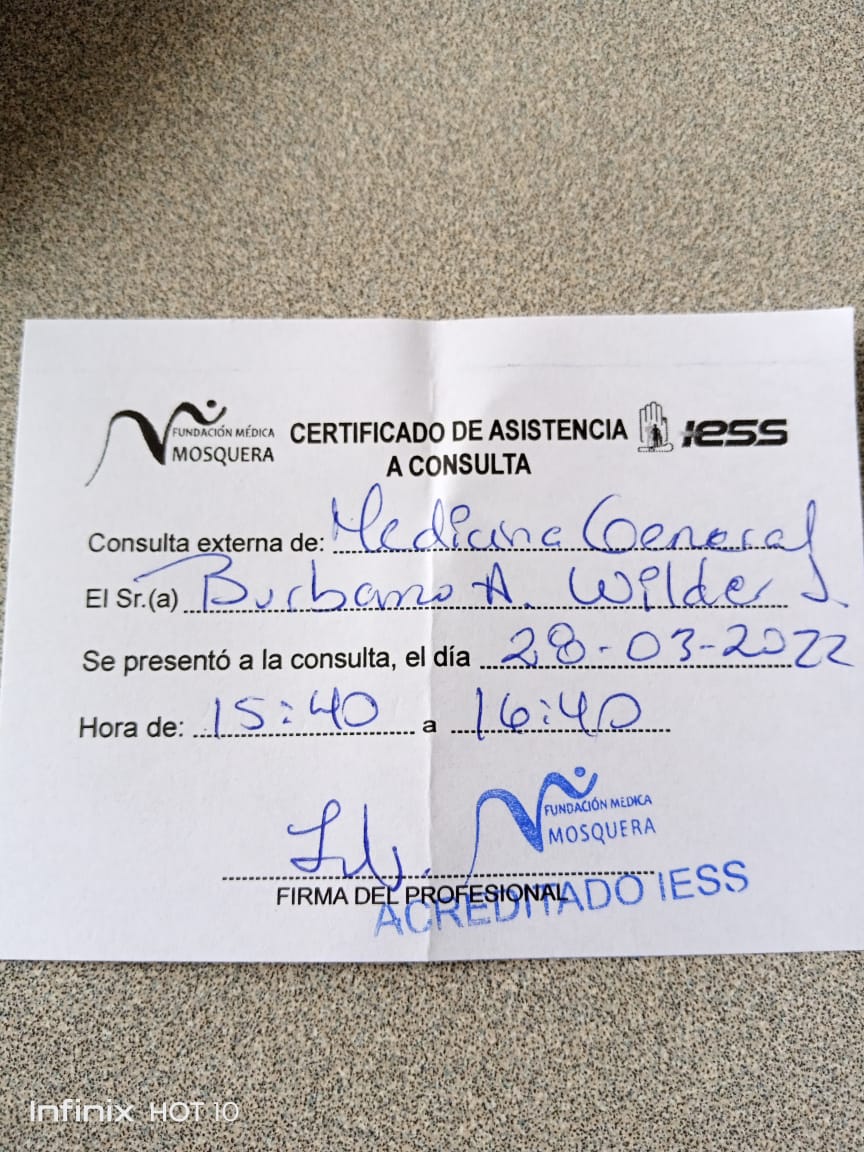 FUNDACIÓN MÉDICA
MOSQUERA
CERTIFICADO DE ASISTENCIA
A CONSULTA
IESS
Consulta externa de: Medicina General
El Sr.(a) Burbano A. Wilder J.
Se presentó a la consulta, el día 28-03-2022
Hora de: 15:40 a 16:40
FUNDACIÓN MÉDICA
MOSQUERA
FIRMA DEL PROFESIONAL
ACREDITADO IESS
Infinix HOT 10